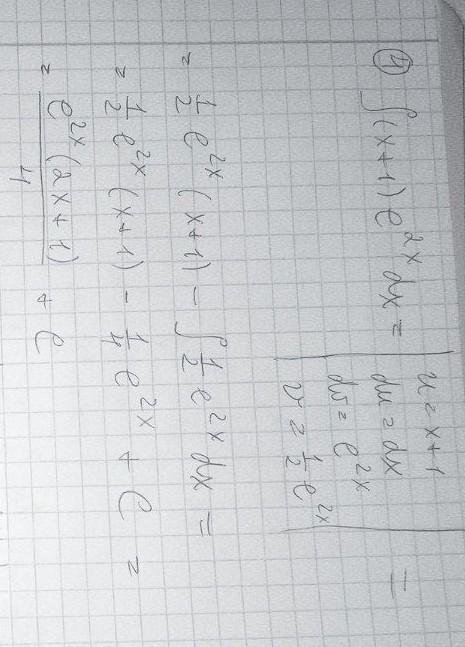 ④ ∫(x+1)e^{2x}dx = | u = x+1 du = dx dv = e^{2x} v = 1/2 e^{2x} | =
= 1/2 e^{2x} (x+1) - ∫ 1/2 e^{2x} dx =
= 1/2 e^{2x} (x+1) - 1/4 e^{2x} + C =
= e^{2x}(2x+1)/4 + C